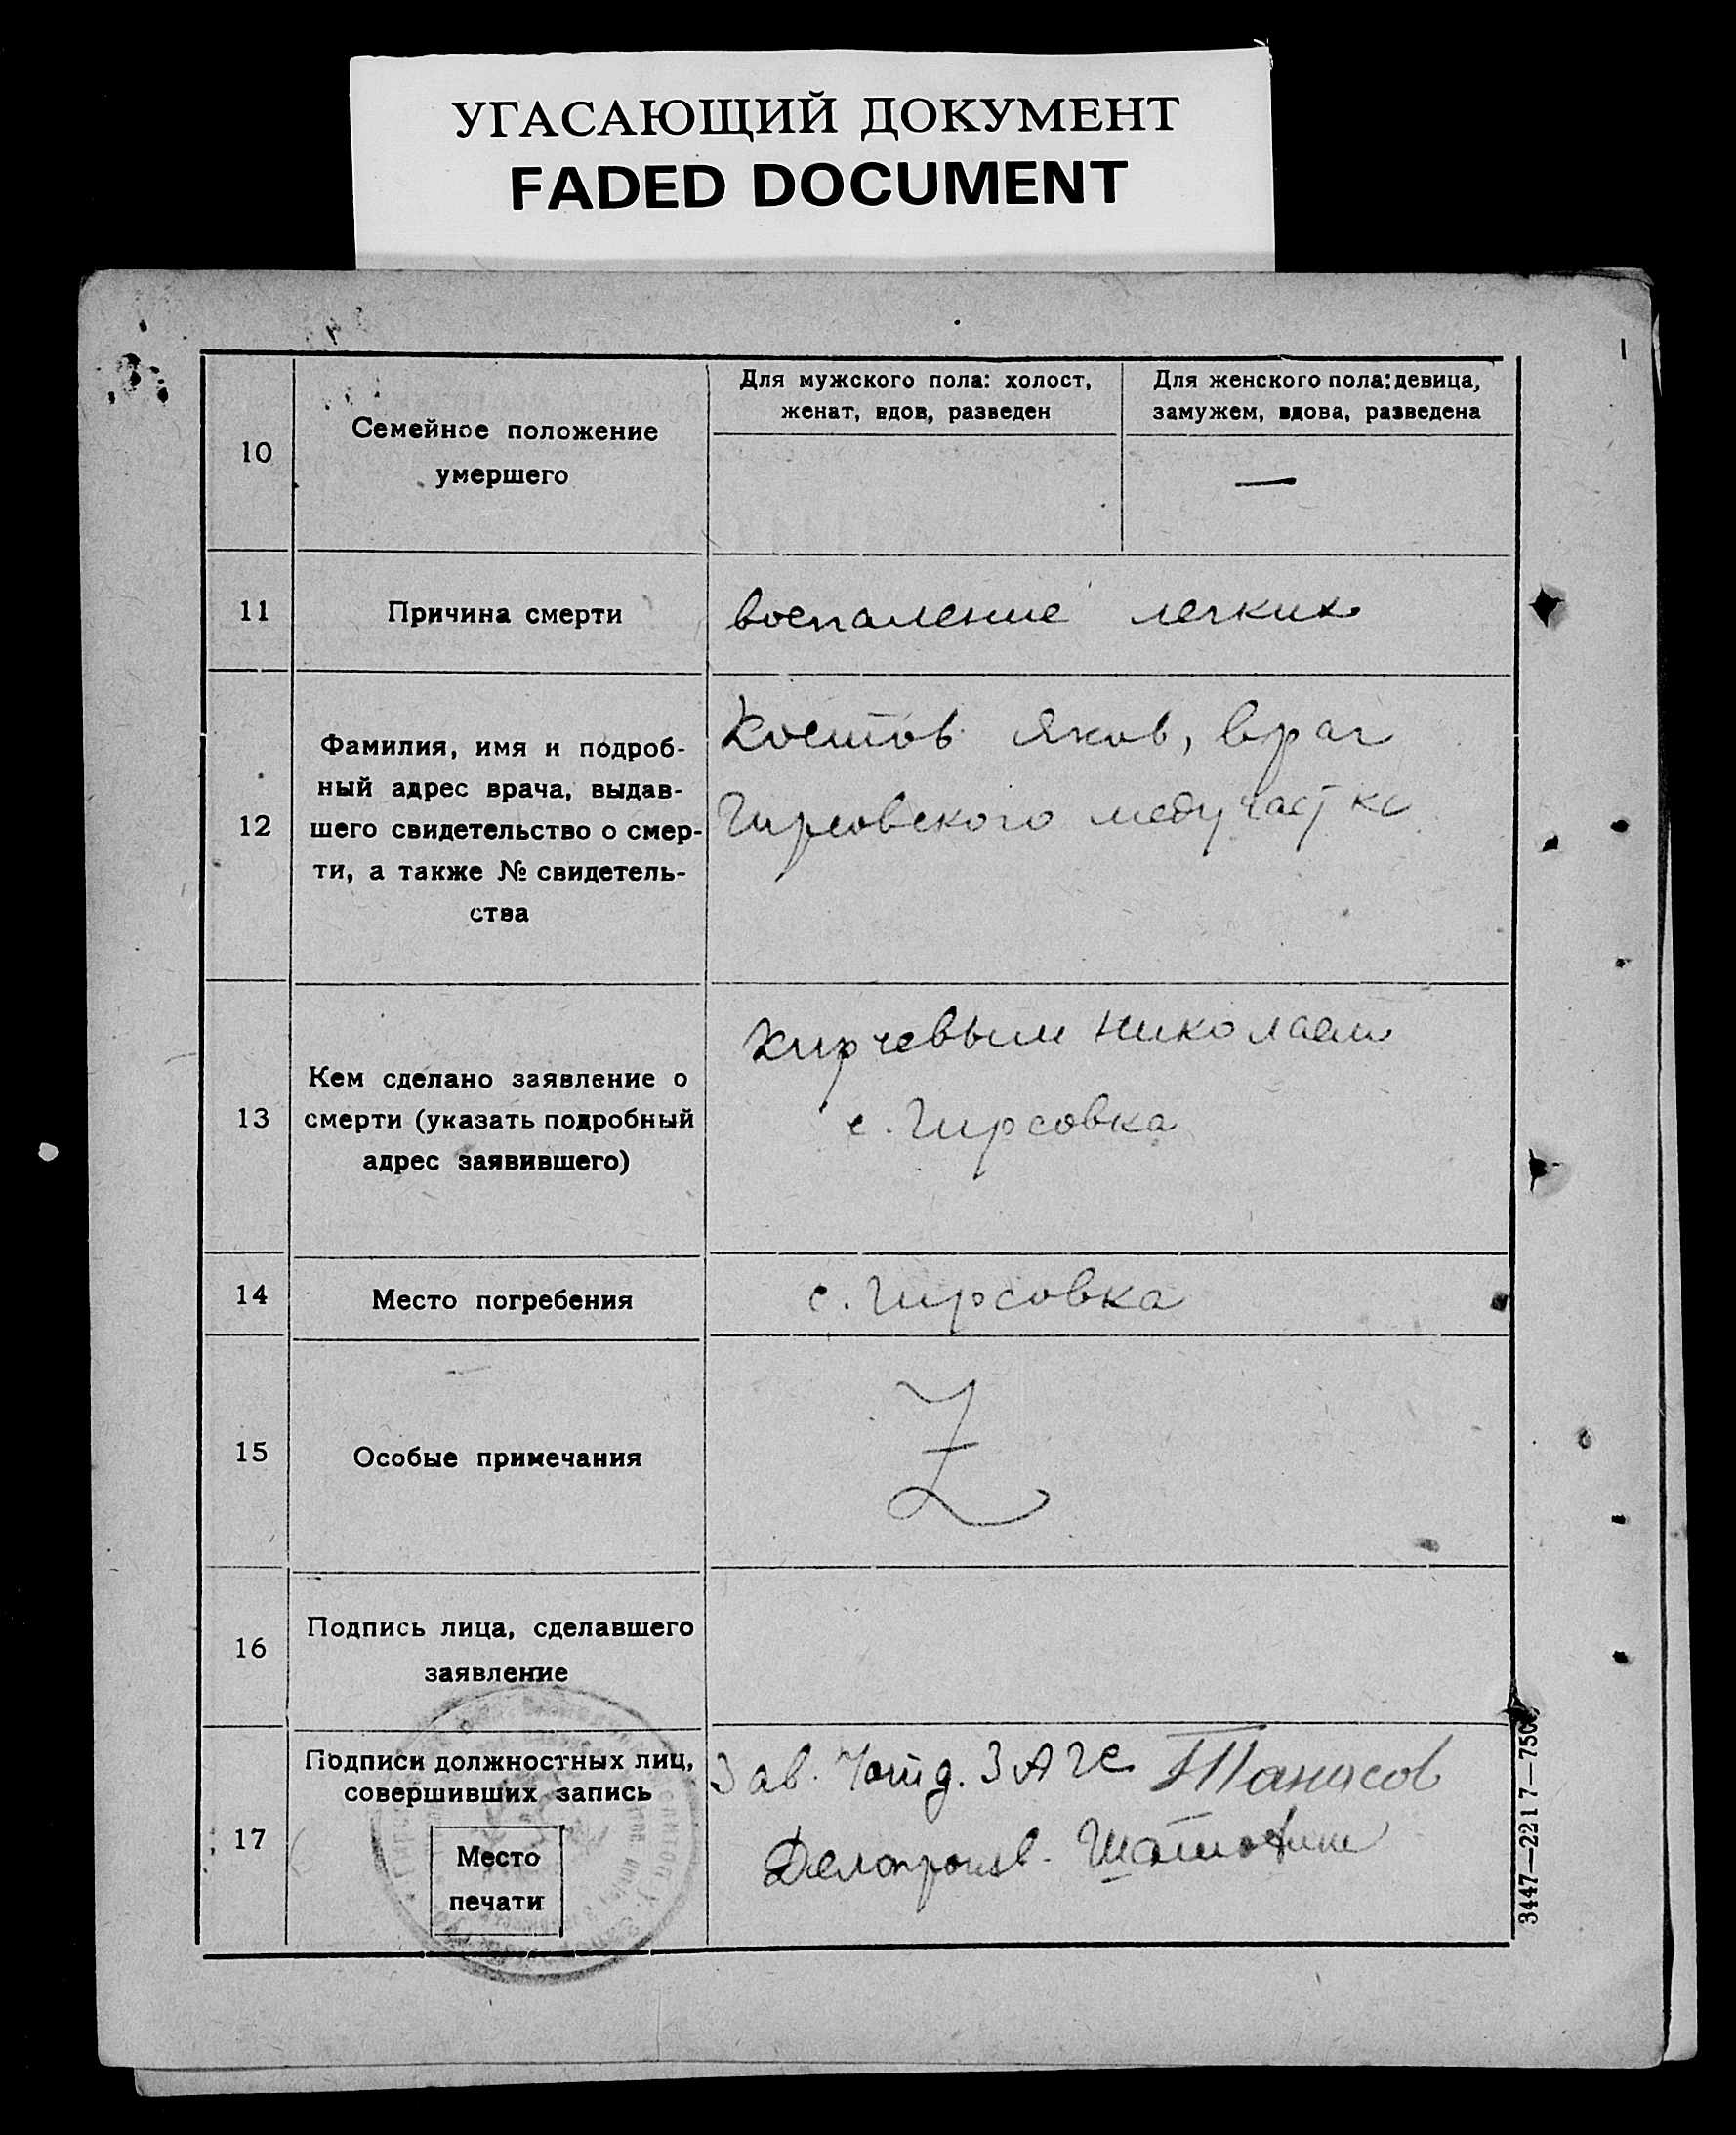 УГАСАЮЩИЙ ДОКУМЕНТ
FADED DOCUMENT
10
Семейное положение
умершего
Для мужского пола: холост,
женат, вдов, разведен
Для женского пола: девица,
замужем, вдова, разведена
—
11
Причина смерти
воспаление легких
12
Фамилия, имя и подроб-
ный адрес врача, выдав-
шего свидетельство о смер-
ти, а также № свидетель-
ства
Костов Яков, врач
Гирсовского медучастка
13
Кем сделано заявление о
смерти (указать подробный
адрес заявившего)
Кирчевым Николаем
с. Гирсовка
14
Место погребения
с. Гирсовка
15
Особые примечания
Z
16
Подпись лица, сделавшего
заявление
17
Подписи должностных лиц,
совершивших запись
Место
печати
Зав. ЗАГС Танасов
Делопроизв.
3447—2217—750